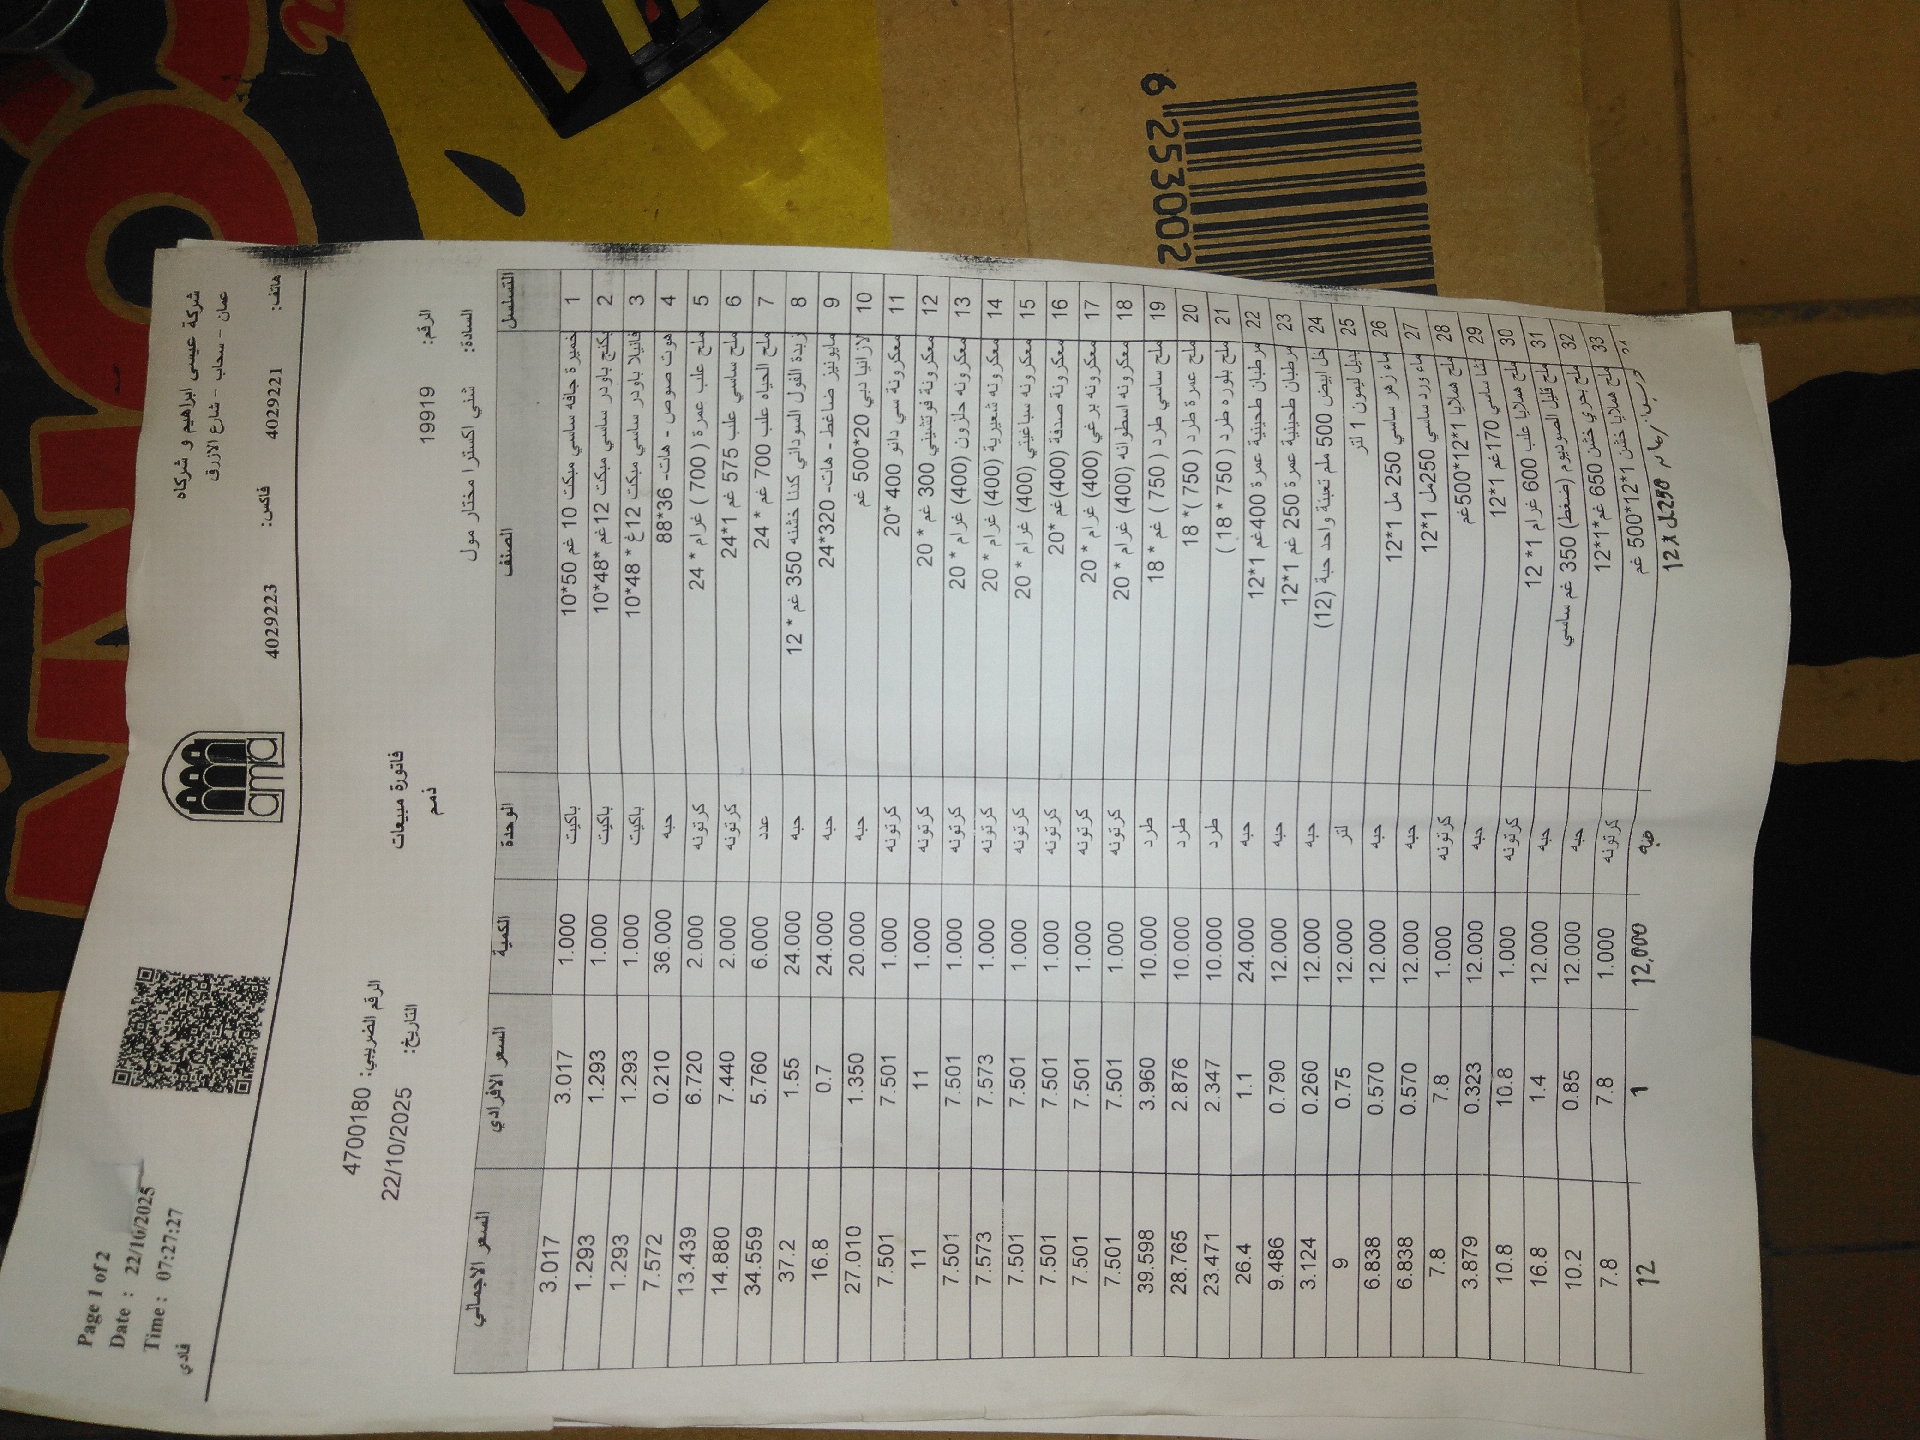 Page 1 of 2
Date : 22/10/2025
Time : 07:27:27
فادي
شركة عيسى ابراهيم و شركاه
عمان - سحاب - شارع الازرق
هاتف: 4029221 فاكس: 4029223
ama
فاتورة مبيعات
ذمم
الرقم الضريبي: 4700180
التاريخ: 22/10/2025
الرقم: 19919
السادة: شني اكسترا مختار مول
التسلسل الصنف الوحدة الكمية السعر الافرادي السعر الاجمالي
1 خميرة جافه ساسي مبكت 10 غم 50*10 باكيت 1.000 3.017 3.017
2 بكنج باودر ساسي مبكت 12غم *48*10 باكيت 1.000 1.293 1.293
3 فانيلا باودر ساسي مبكت 12غ * 48*10 باكيت 1.000 1.293 1.293
4 هوت صوص - هات- 36*88 حبه 36.000 0.210 7.572
5 ملح علب عمرة ( 700 ) غرام * 24 كرتونه 2.000 6.720 13.439
6 ملح ساسي علب 575 غم 1*24 كرتونه 2.000 7.440 14.880
7 ملح الحياه علب 700 غم * 24 عدد 6.000 5.760 34.559
8 زبدة الفول السوداني كلنا خشنه 350 غم * 12 حبه 24.000 1.55 37.2
9 مايونيز ضاغط - هات- 320*24 حبه 24.000 0.7 16.8
10 لازانيا دبي 20*500 غم حبه 20.000 1.350 27.010
11 معكرونة سي دانو 400 *20 كرتونه 1.000 7.501 7.501
12 معكرونة فوتشيني 300 غم * 20 كرتونه 1.000 11 11
13 معكرونه حلزون (400) غرام * 20 كرتونه 1.000 7.501 7.501
14 معكرونه شعيرية (400) غرام * 20 كرتونه 1.000 7.573 7.573
15 معكرونه سباغيتي (400) غرام * 20 كرتونه 1.000 7.501 7.501
16 معكرونة صدفة (400) غم *20 كرتونه 1.000 7.501 7.501
17 معكرونه برغي (400) غرام * 20 كرتونه 1.000 7.501 7.501
18 معكرونه اسطوانه (400) غرام * 20 كرتونه 1.000 7.501 7.501
19 ملح ساسي طرد ( 750 ) غم * 18 طرد 10.000 3.960 39.598
20 ملح عمرة طرد ( 750 )* 18 طرد 10.000 2.876 28.765
21 ملح بلوره طرد ( 750 * 18 ) طرد 10.000 2.347 23.471
22 مرطبان طحينية عمرة 400غم 1*12 حبه 24.000 1.1 26.4
23 مرطبان طحينية عمرة 250 غم 1*12 حبه 12.000 0.790 9.486
24 خل ابيض 500 ملم تعبئة واحد حبة (12) حبه 12.000 0.260 3.124
25 بديل ليمون 1 لتر لتر 12.000 0.75 9
26 ماء زهر ساسي 250 مل 1*12 حبه 12.000 0.570 6.838
27 ماء ورد ساسي 250مل 1*12 حبه 12.000 0.570 6.838
28 ملح هملايا 1*12*500غم كرتونه 1.000 7.8 7.8
29 نشا ساسي 170غم 1*12 حبه 12.000 0.323 3.879
30 ملح هملايا علب 600 غرام 1* 12 كرتونه 1.000 10.8 10.8
31 ملح قليل الصوديوم (ضغط) 350 غم ساسي حبه 12.000 1.4 16.8
32 ملح بحري خشن 650 غم*1*12 حبه 12.000 0.85 10.2
33 ملح هملايا خشن 1*12*500 غم كرتونه 1.000 7.8 7.8
12x 250 حبه 12,000 1 12
6 253002